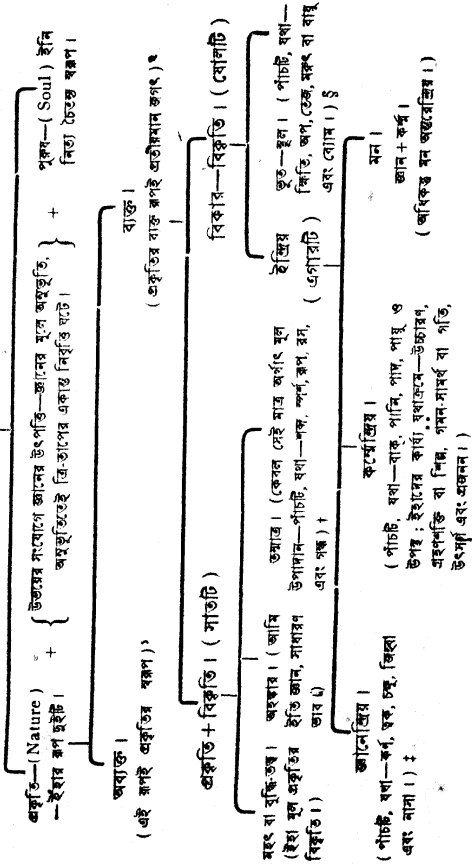 প্রকৃতি—(Nature)
— ইঁহার রূপ দুইটি।
+
উভয়ের সংযোগে জ্ঞানের উৎপত্তি—জ্ঞানের মূলে অনুভূতি,
অনুভূতিতেই ত্রি-তাপের একান্ত নিবৃত্তি ঘটে।
+
পুরুষ—(Soul) ইনি
নিত্য চৈতন্য স্বরূপ।
অব্যক্ত।
(এই রূপই প্রকৃতির স্বরূপ)১
ব্যক্ত।
(প্রকৃতির ব্যক্ত রূপই প্রতীয়মান জগৎ)২
প্রকৃতি + বিকৃতি। (সাতটি)
বিকার—বিকৃতি। (ষোলটি)
মহৎ বা বুদ্ধি-তত্ত্ব।
(ইহা মূল প্রকৃতির
বিকৃতি।)
অহঙ্কার। (আমি
ইতি জ্ঞান, সাধারণ
ভাব ৫)
তন্মাত্র। (কেবল সেই মাত্র অর্থাৎ মূল
উপাদান—পাঁচটি, যথা—শব্দ, স্পর্শ, রূপ, রস,
এবং গন্ধ) †
ইন্দ্রিয়
(এগারটি)
ভূত—স্থূল। (পাঁচটি, যথা—
ক্ষিতি, অপ, তেজ, মরুৎ বা বায়ু
এবং ব্যোম।) §
জ্ঞানেন্দ্রিয়।
(পাঁচটি, যথা—কর্ণ, ত্বক, চক্ষু, জিহ্বা
এবং নাসা।) ‡
কর্ম্মেন্দ্রিয়।
(পাঁচটি, যথা—বাক্, পানি, পাদ, পায়ু ও
উপস্থ; ইহাদের কার্য্য যথাক্রমে—উচ্চারণ,
গ্রহণশক্তি বা শিল্প, গমন-সামর্থ বা গতি,
উৎসর্গ এবং প্রজনন।)
মন।
জ্ঞান + কর্ম্ম।
(অধিকন্তু মন অন্তরেন্দ্রিয়।)